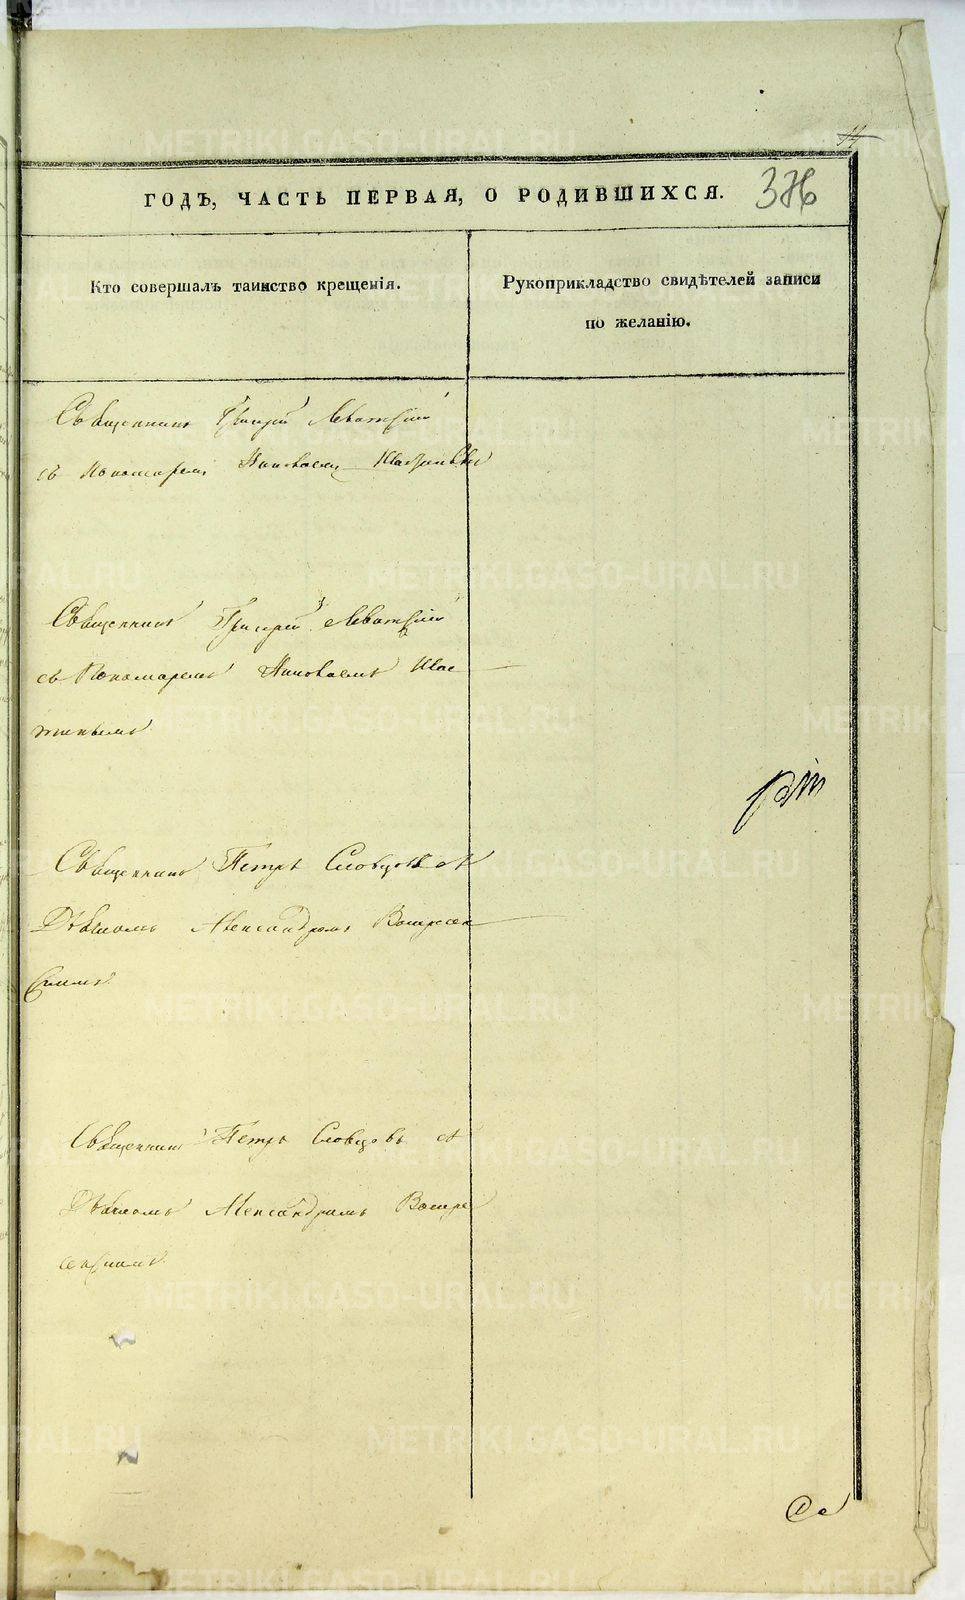 ГОДЪ, ЧАСТЬ ПЕРВАЯ, О РОДИВШИХСЯ.
Кто совершалъ таинство крещенія.
Рукоприкладство свидѣтелей записи
по желанію.
Священникъ Григорій Левитскій
съ Пономаремъ Николаемъ
Священникъ Григорій Левитскій
съ Пономаремъ Николаемъ
Священникъ Петръ Словцовъ съ
Дьячкомъ Александромъ Воскресен
скимъ
Священникъ Петръ Словцовъ съ
Дьячкомъ Александромъ Воскре
сенскимъ
METRIKI.GASO-URAL.RU